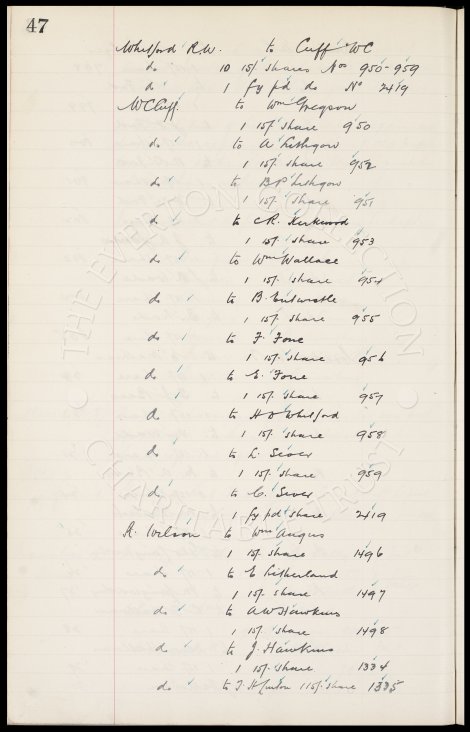 47
Whitford R.W. to Cuff WC
do 10 15/- shares Nos 950-959
do 1 fy pd do No 2419
WC Cuff to Wm Gregson
1 15/- share 950
do to A Lithgow
1 15/- share 952
do to B P Lithgow
1 15/- share 951
do to C R. Kirkwood
1 15/- share 953
do to Wm Wallace
1 15/- share 954
do to B. Entwistle
1 15/- share 955
do to F. Fone
1 15/- share 956
do to E. Fone
1 15/- share 957
do to H D Whitford
1 15/- share 958
do to L. Sever
1 15/- share 959
do to C. Sever
1 fy pd share 2419
R. Wilson to Wm Angus
1 15/- share 1496
do to E Litherland
1 15/- share 1497
do to A W Hawkins
1 15/- share 1498
do to J. Hawkins
1 15/- share 1334
do to T. H 1 15/- share 1335
THE EVERTON COLLECTION
CHARITABLE TRUST